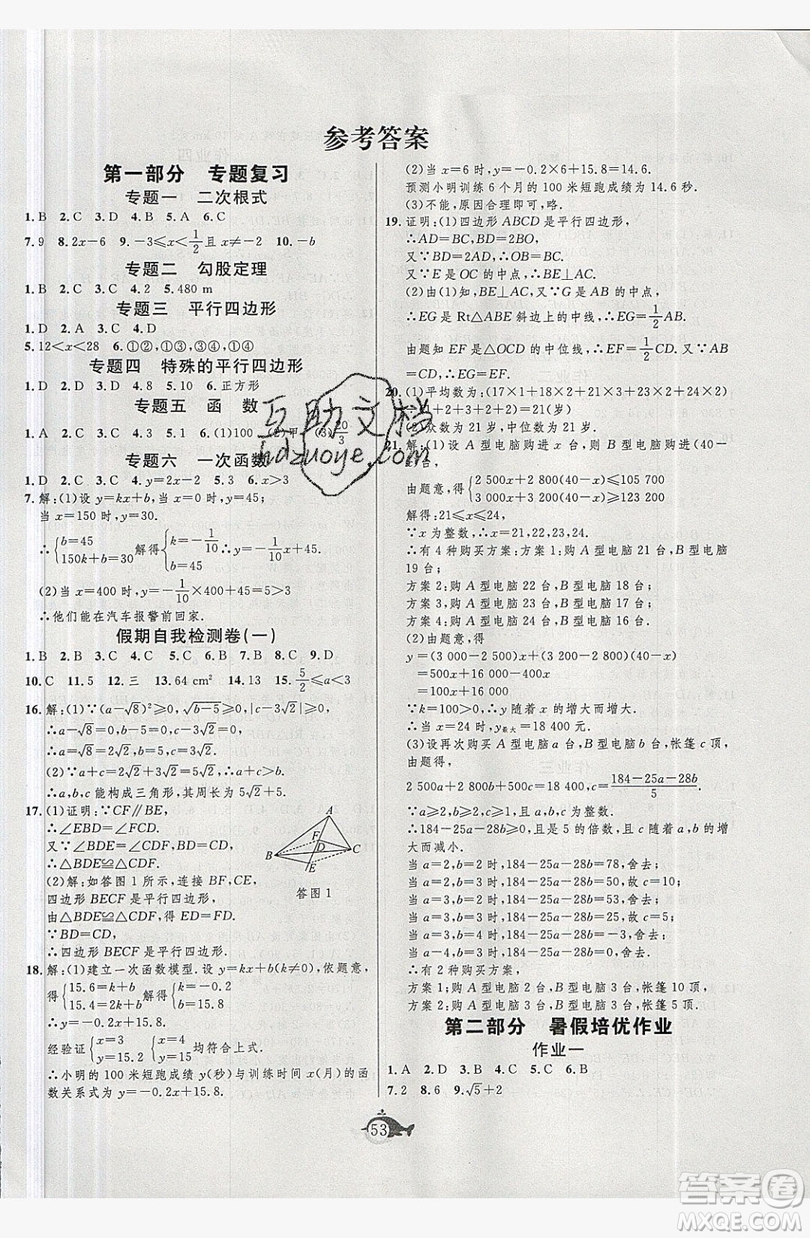 参考答案
第一部分 专题复习
专题一 二次根式
1.B 2.C 3.D 4.B 5.A 6.C
7.9 8.2x－6 9.－3≤x＜1/2且x≠－2 10.－b
专题二 勾股定理
1.B 2.B 3.C 4.2 5.480 m
专题三 平行四边形
1.D 2.A 3.C 4.D
5.12＜x＜28 6.①②,①③,①④
专题四 特殊的平行四边形
1.D 2.D 3.A 4.8 5.10 6.正方形
专题五 函 数
1.A 2.C 3.C 4.3 5.1 6.(1)100 (2)甲 (3)20/3
专题六 一次函数
1.B 2.D 3.C 4.0 5.3 6.x＞3
7.解:(1)设 y＝kx＋b,当 x＝0 时,y＝45;
当 x＝150 时,y＝30.
∴{b＝45 150k＋b＝30 解得{k＝－1/10 b＝45 ∴y＝－1/10x＋45.
(2)当 x＝400 时,y＝－1/10×400＋45＝5＞3
∴他们能在汽车报警前回家.
假期自我检测卷(一)
1.B 2.B 3.C 4.C 5.A 6.D 7.B 8.C 9.D
10.C 11.5 12.三 13.64 cm² 14.13 15.5/2≤a＜3
16.解:(1)∵(a－√8)²≥0,√(b－5)≥0,|c－3√2|≥0,
∴a－√8＝0,b－5＝0,c－3√2＝0,
∴a＝√8＝2√2,b＝5,c＝3√2.
(2)∵a＝√8＝2√2,b＝5,c＝3√2,
∴a,b,c 能构成三角形,其周长为 5√2＋5.
17.(1)证明:∵CF∥BE,
∴∠EBD＝∠FCD,
又∵∠BDE＝∠CDF,BD＝CD,
∴△BDE≌△CDF.
(2)解:如答图 1 所示,连接 BF,CE,
四边形 BECF 是平行四边形,
由△BDE≌△CDF 得 ED＝FD.
∵BD＝CD,
∴四边形 BECF 是平行四边形.
A
F
D
B
C
E
答图 1
18.解:(1)建立一次函数模型.设 y＝kx＋b(k≠0),依题意,
得{15.6＝k＋b 15.4＝2k＋b 解得{k＝－0.2 b＝15.8
∴y＝－0.2x＋15.8.
经验证{x＝3 y＝15.2 {x＝4 y＝15 均符合上式.
∴小明的 100 米短跑成绩 y(秒)与训练时间 x(月)的函
数关系式为 y＝－0.2x＋15.8.
(2)当 x＝6 时,y＝－0.2×6＋15.8＝14.6.
预测小明训练 6 个月的 100 米短跑成绩为 14.6 秒.
(3)不能,原因合理即可,略.
19.证明:(1)四边形 ABCD 是平行四边形,
∴AD＝BC,BD＝2BO,
又∵BD＝2AD,∴BO＝BC,
又∵E 是 OC 的中点,∴BE⊥AC.
(2)由(1)知,BE⊥AC,又∵G 是 AB 的中点,
∴EG 是 Rt△ABE 斜边上的中线,∴EG＝1/2AB,
由题知 EF 是△OCD 的中位线,∴EF＝1/2CD,又∵AB
＝CD,∴EG＝EF.
20.(1)平均数为:(17×1＋18×2＋21×3＋23×2＋24×2)
÷(1＋2＋3＋2＋2)＝21(岁)
(2)众数为 21 岁,中位数为 21 岁.
21.解:(1)设 A 型电脑购进 x 台,则 B 型电脑购买(40－
x)台,
由题意,得{2 500x＋2 800(40－x)≤105 700 3 000x＋3 200(40－x)≥123 200
解得:21≤x≤24,
∵x 为整数,∴x＝21,22,23,24.
∴有 4 种购买方案:方案 1:购 A 型电脑 21 台,B 型电脑
19 台;
方案 2:购 A 型电脑 22 台,B 型电脑 18 台;
方案 3:购 A 型电脑 23 台,B 型电脑 17 台;
方案 4:购 A 型电脑 24 台,B 型电脑 16 台;
(2)由题意,得
y＝(3 000－2 500)x＋(3 200－2 800)(40－x)
＝500x＋16 000－400x
＝100x＋16 000
∵k＝100＞0,∴y 随着 x 的增大而增大.
∴当 x＝24 时,y最大＝18 400元.
(3)设再次购买 A 型电脑 a 台,B 型电脑 b 台,帐篷 c 顶,
由题意,得
2 500a＋2 800b＋500c＝18 400,c＝(184－25a－28b)/5.
∵a≥2,b≥1,c≥1,且 a,b,c 为整数,
∴184－25a－28b＞0,且是 5 的倍数,且 c 随着 a,b 的增
大而减小.
当 a＝2,b＝2 时,184－25a－28b＝78,舍去;
当 a＝2,b＝3 时,184－25a－28b＝50,故 c＝10;
当 a＝3,b＝2 时,184－25a－28b＝53,舍去;
当 a＝3,b＝3 时,184－25a－28b＝25,故 c＝5;
当 a＝3,b＝4 时,184－25a－28b＝－3,舍去;
当 a＝4,b＝3 时,184－25a－28b＝0,舍去.
∴有 2 种购买方案,
方案 1:购 A 型电脑 2 台,B 型电脑 3 台,帐篷 10 顶,
方案 2:购 A 型电脑 3 台,B 型电脑 3 台,帐篷 5 顶.
第二部分 暑假培优作业
作业一
1.A 2.D 3.D 4.B 5.C 6.B
7.2 8.6 9.√5＋2
53
互助文档
hdzuoye.com
答案圈
MXQE.COM